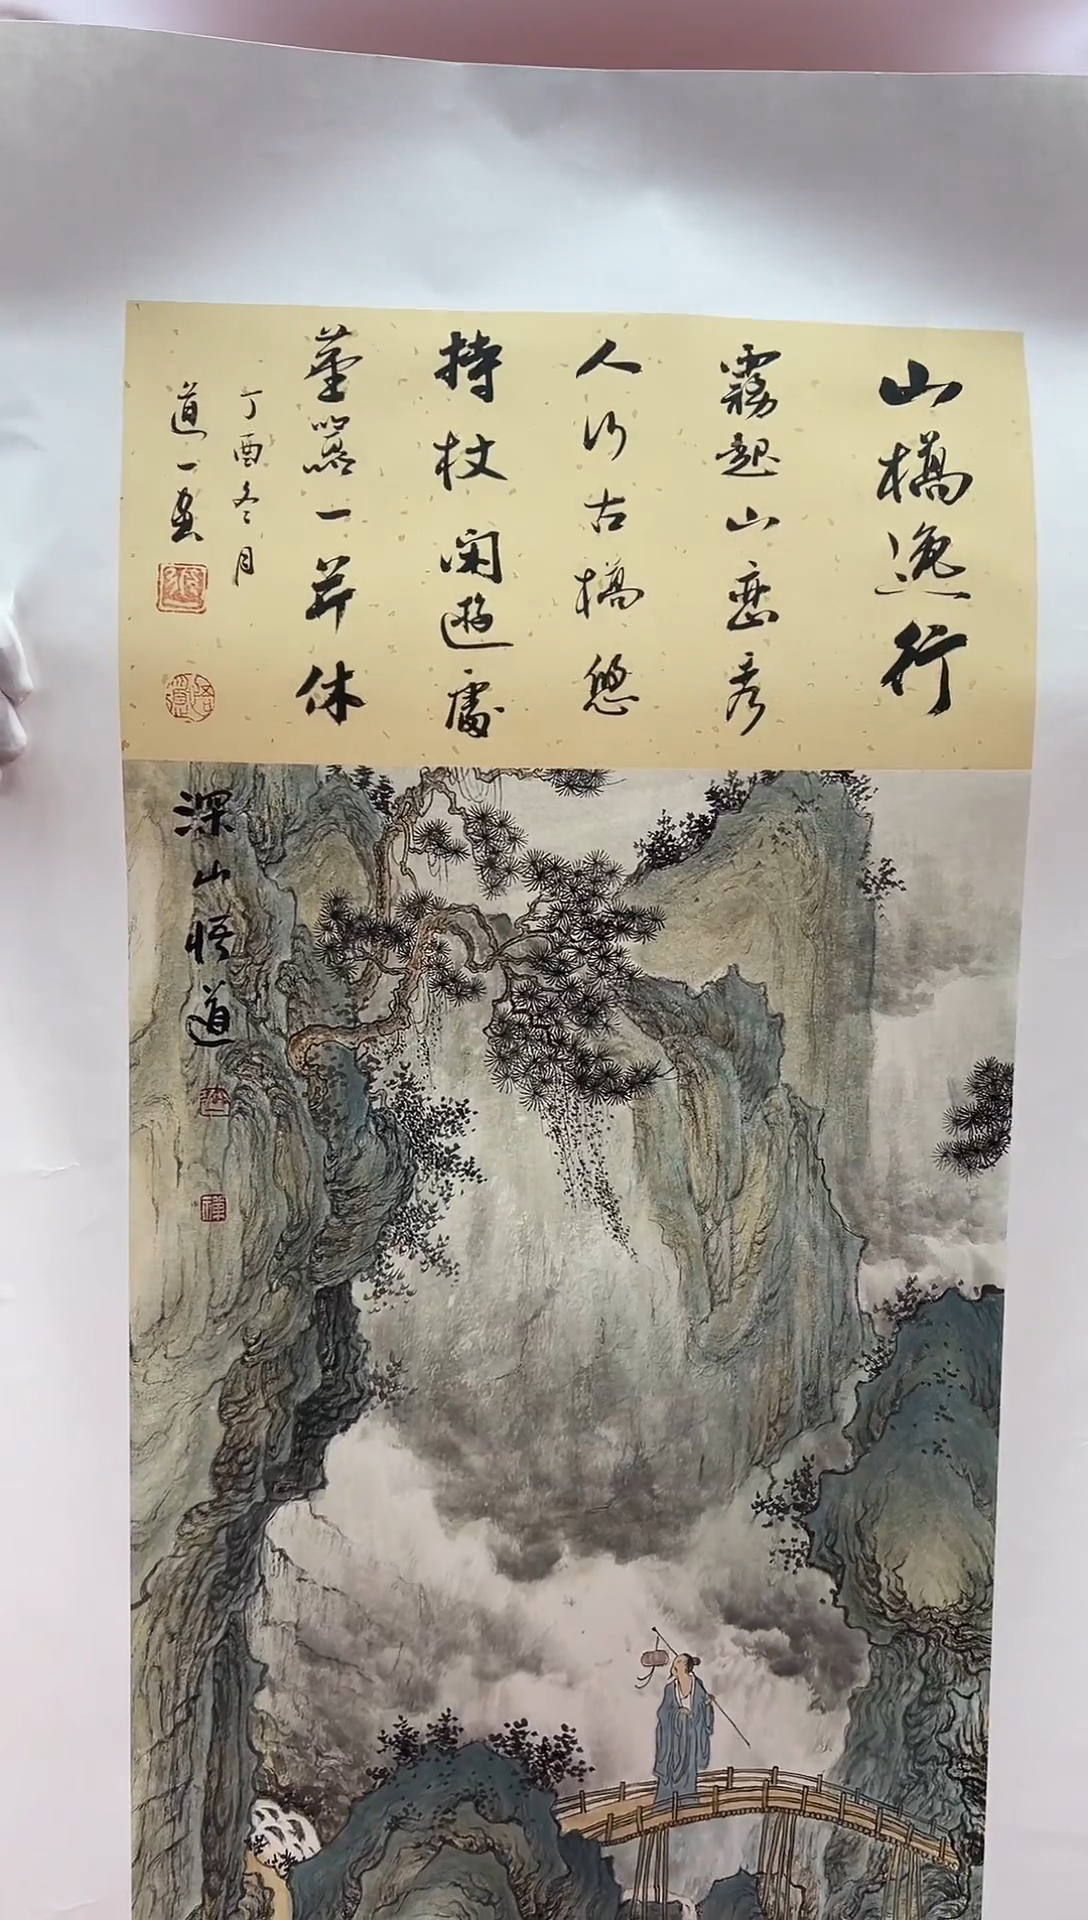 山橋逸行
霧起山巒秀
人行古橋悠
持杖閑遊處
塵囂一並休
丁酉冬月
道一畫
深山悟道
禪